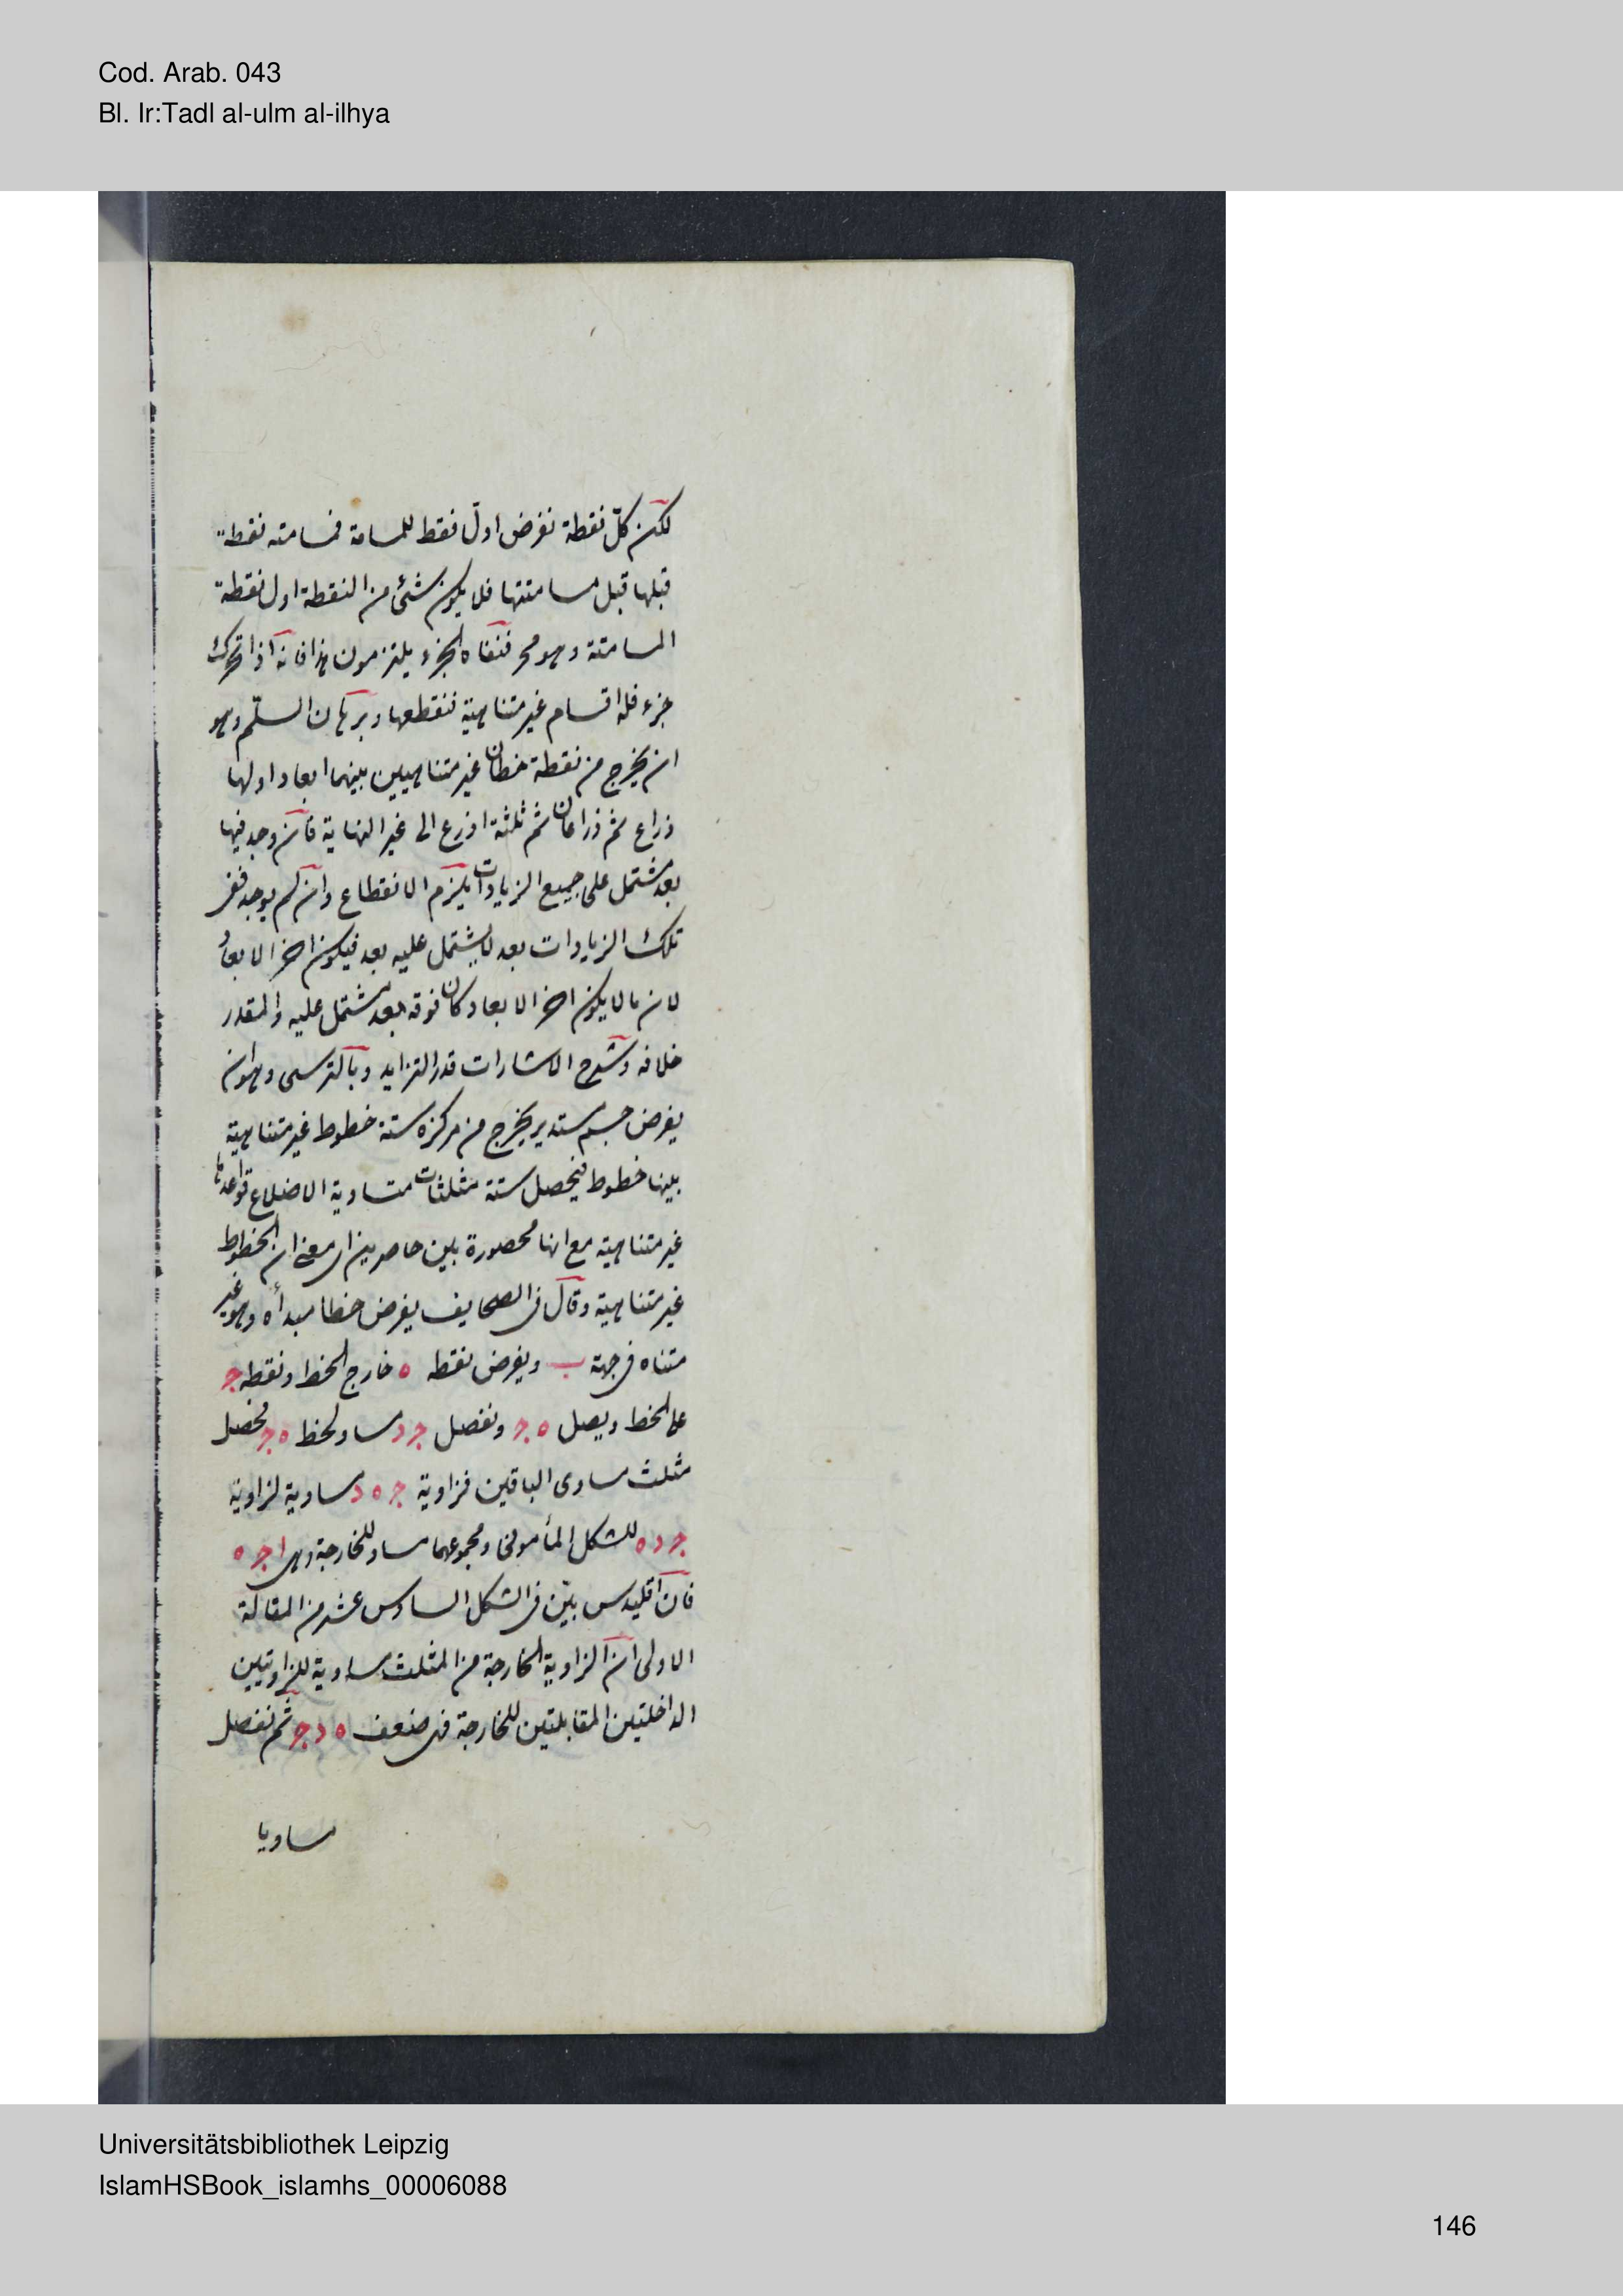 Cod. Arab. 043
Bl. Ir:Tadl al-ulm al-ilhya
لكن كلّ نقطة نفرض اولّ نقط للمسامتة فمسامتته نقطة
قبلها قبل مسامتتها فلا يكون شئ من النقطة اول نقطة
المسامتة وهو مح فنفاة الجزء يلتزمون هذا فانه اذا تحرك
جزء فله اقسام غير متناهية ننقطعها وبرهان السلّم وهو
ان يخرج من نقطة خطان غير متناهيين بينهما ابعاد اولها
ذراع ثم ذراعان ثم ثلثة اذرع الى غير النهاية فان وجد فيها
بعد مشتمل على جميع الزيادات يلزم الانقطاع وان لم يوجد ففى
تلك الزيادات بعد لا يشتمل عليه بعد فيكون اخر الابعاد
لان ما لا يكون اخر الابعاد كان فوقه بعد مشتمل عليه والمقدر
خلافه وشرح الاشارات قدر التزايد وبالترسى وهو ان
يفرض جسم مستدير يخرج من مركزه ستة خطوط غير متناهية
بينها خطوط فيحصل ستة مثلثات متساوية الاضلاع قواعدها
غير متناهية مع انها محصورة بين حاصرين اى معنى ان الخطوط
غير متناهية وقال فى الصحايف يفرض خطا مبدأه وهو غير
متناه فى جهة ب ويفرض نقطه ه خارج الخط ونقطه ج
على الخط ويصل ه ج ونفصل ج د مساو لخط ه ج فحصل
مثلث مساوى الباقين فزاوية ج ه د مساوية لزاوية
ج د ه للشكل المأمونى ومجموعهما مساو للخارجة وهى ا ج ه
فان اقليدس بيّن فى الشكل السادس عشر من المقالة
الاولى ان الزاوية الخارجة من المثلث مساوية للزاويتين
الداخلتين المقابلتين للخارجة فهى ضعف ه د ج ثم نفصل
مساويا
Universitätsbibliothek Leipzig
IslamHSBook_islamhs_00006088
146